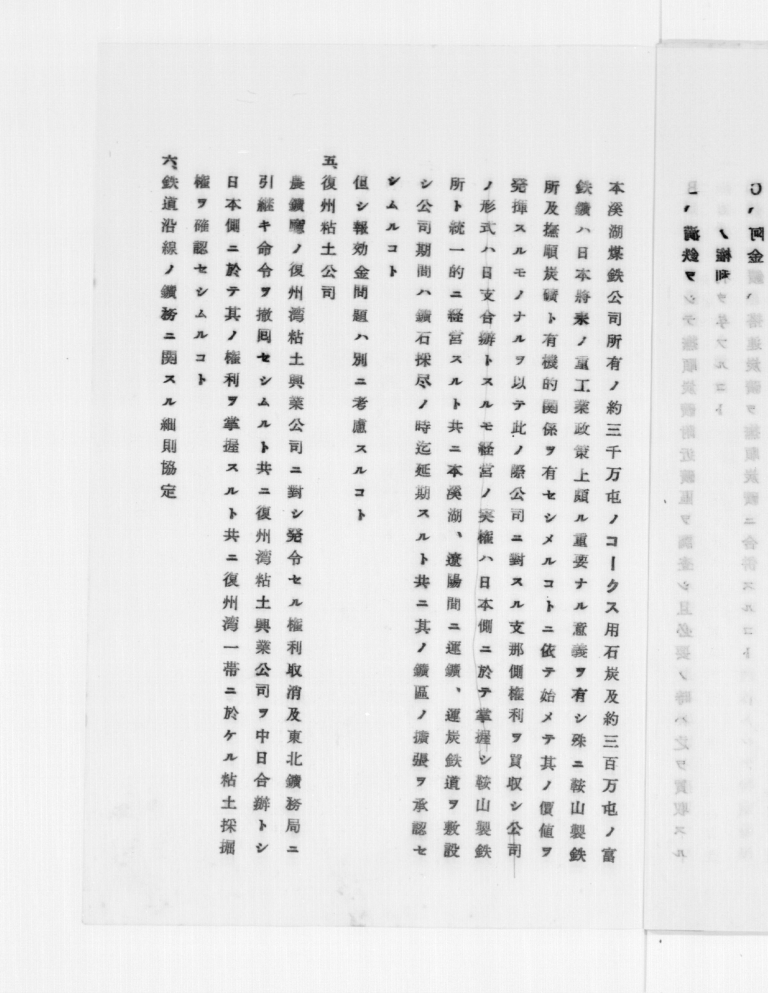 本溪湖煤鉄公司所有ノ約三千万屯ノコークス用石炭及約三百万屯ノ富
鉄鑛ハ日本將来ノ重工業政策上頗ル重要ナル意義ヲ有シ殊ニ鞍山製鉄
所及撫順炭礦ト有機的関係ヲ有セシメルコトニ依テ始メテ其ノ價値ヲ
発揮スルモノナルヲ以テ此ノ際公司ニ對スル支那側権利ヲ買収シ公司
ノ形式ハ日支合辦トスルモ経営ノ実権ハ日本側ニ於テ掌握シ鞍山製鉄
所ト統一的ニ経営スルト共ニ本溪湖、遼陽間ニ運鑛、運炭鉄道ヲ敷設
シ公司期間ハ鑛石採尽ノ時迄延期スルト共ニ其ノ鑛區ノ擴張ヲ承認セ
シムルコト
但シ報効金問題ハ別ニ考慮スルコト
五、復州粘土公司
農鑛廳ノ復州湾粘土興業公司ニ對シ発令セル権利取消及東北鑛務局ニ
引継キ命令ヲ撤囘セシムルト共ニ復州湾粘土興業公司ヲ中日合辦トシ
日本側ニ於テ其ノ権利ヲ掌握スルト共ニ復州湾一帯ニ於ケル粘土採掘
権ヲ確認セシムルコト
六、鉄道沿線ノ鑛務ニ関スル細則協定